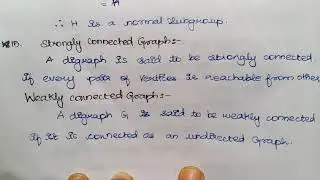 = H
∴ H is a normal subgroup.
15. Strongly Connected Graphs:-
A digraph is said to be strongly connected
if every pair of vertices is reachable from other
Weakly connected Graphs:-
A digraph G is said to be weakly connected
if it is connected as an undirected Graph.